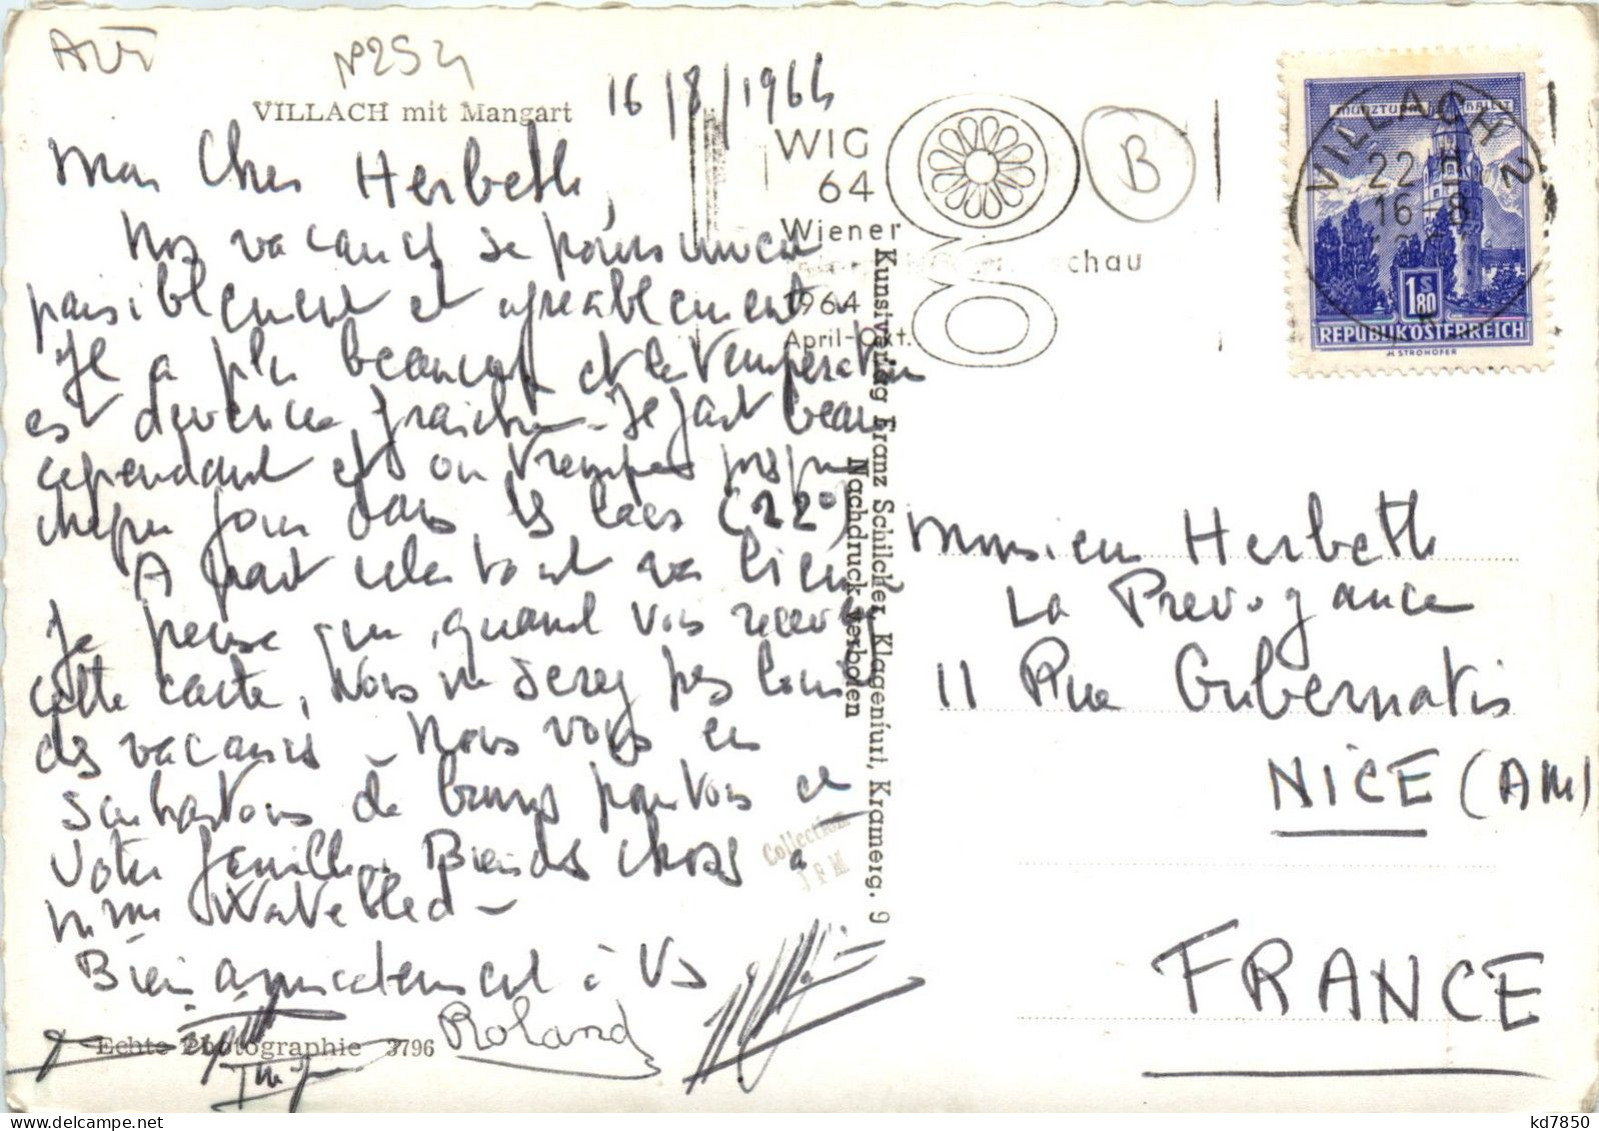 Aut
N°254
VILLACH mit Mangart
16/8/1964
Mon Cher Herbeth,
Nos vacances se poursuivent
paisiblement et agréablement
Il a plu beaucoup et la température
est devenue fraiche - Il fait beau
cependant et on trempe presque
chaque jour dans les lacs (22°)
A part cela tout va bien
Je pense que, quand vous recevrez
cette carte, vous ne serez pas loin
des vacances - Nous vous en
souhaitons de bonnes pour vous et
votre famille. Bien des choses à
Mme
Bien amicalement à Vs
Roland
Echte Photographie 3796
Collection
JPM
Kunstverlag Franz Schilcher, Klagenfurt, Kramerg. 9
Nachdruck verboten
WIG
64
Wiener
schau
1964
April-Okt.
B
VILLACH 2
22 H
16-8
MÜNZTURM HALL I.T.
1 S 80
REPUBLIK ÖSTERREICH
H. STROHOFER
Monsieur Herbeth
La Prévoyance
11 Rue Gubernatis
NICE (AM)
FRANCE
kd7850